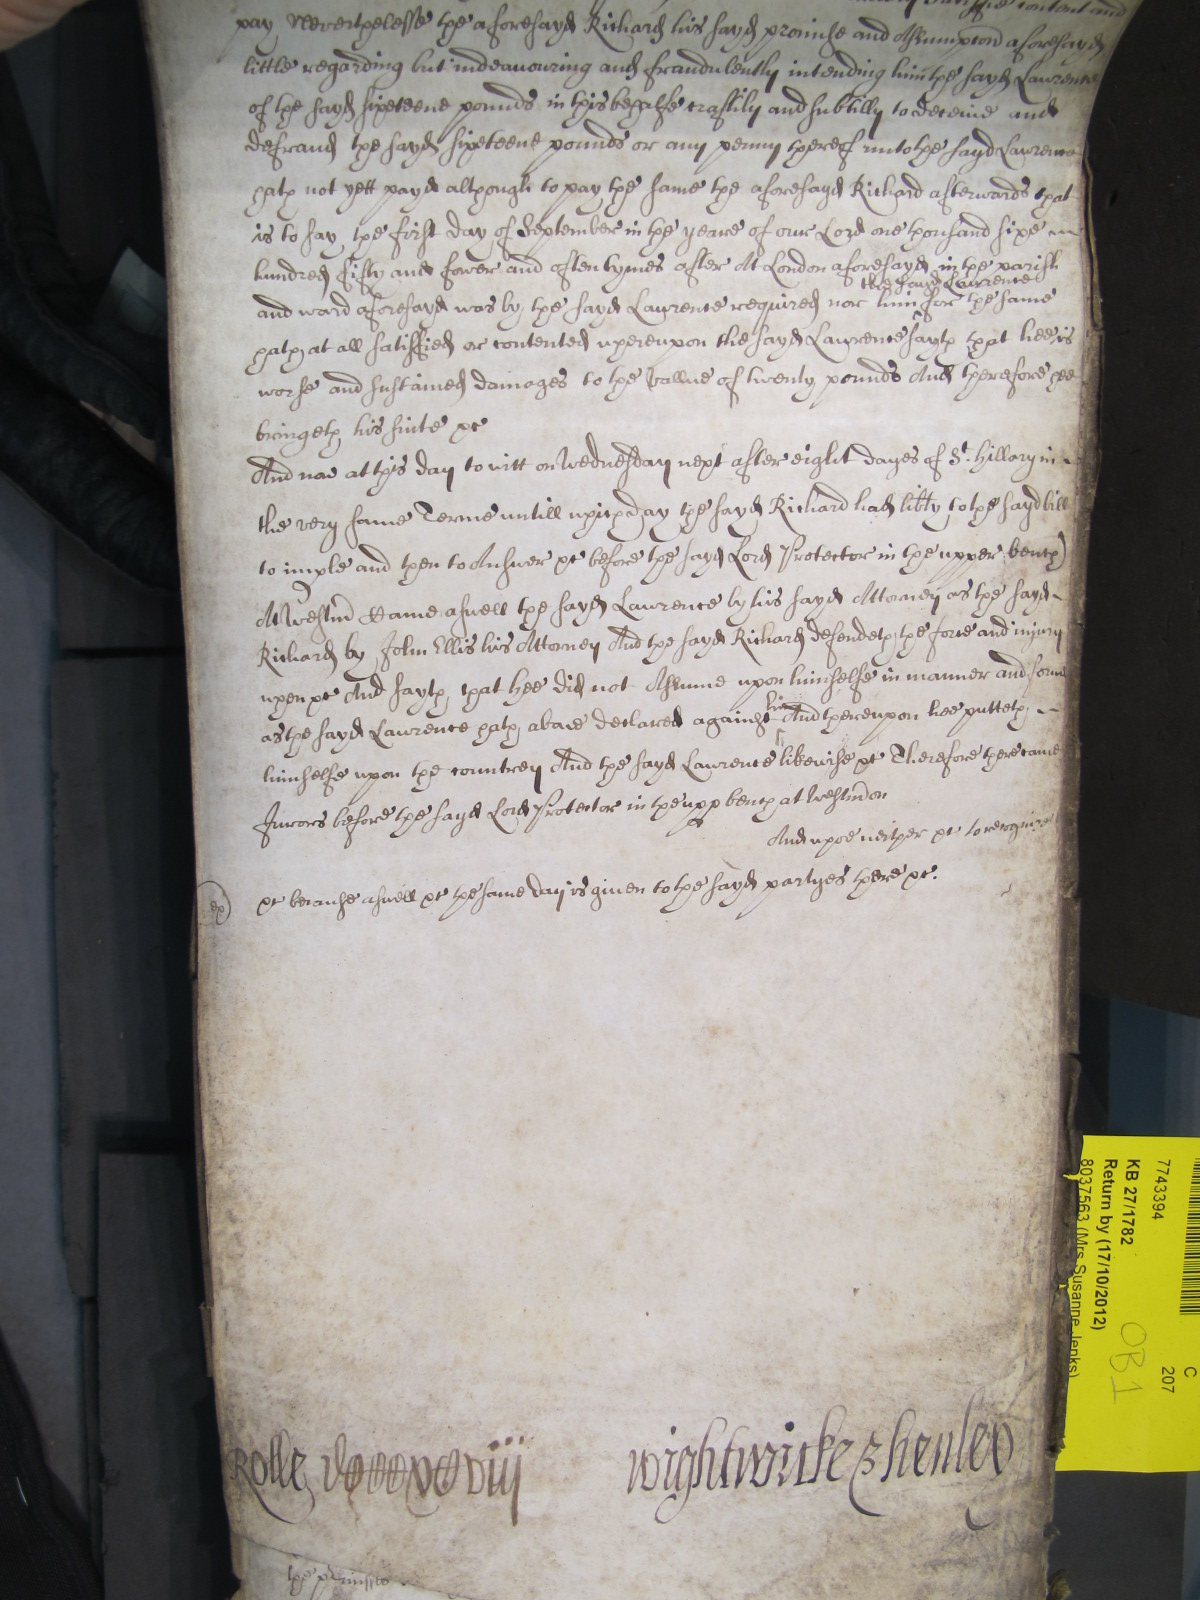 pay Neverthelesse the aforesayd Richard his sayd promise and Assumpcon aforesayd
little regarding but indeavouring and fraudulently intending him the sayd Lawrence
of the sayd sixeteene pounds in this behalfe craftily and subtilly to deceive and
defraud the sayd sixeteene pounds or any penny thereof unto the sayd Lawrence
hath not yett payd although to pay the same the aforesayd Richard afterwards that
is to say the first day of September in the yeare of our Lord one thousand sixe
hundred fifty and fower and oftentymes after At London aforesayd in the parish
the sayd Lawrence
and ward aforesayd was by the sayd Lawrence required nor him for the same
hath at all satisfied or contented whereupon the sayd Lawrence sayth that hee is
worse and sustained damages to the vallue of twenty pounds And therefore hee
bringeth his suite &c
And now at this day to witt on Wednesday next after eight dayes of St. Hillary in
the very same Terme untill which day the sayd Richard had libty to the sayd bill
to imple and then to Answer &c before the sayd Lord Protector in the upper bench
At Westm Came aswell the sayd Lawrence by his sayd Attorney as the sayd
Richard by John Ellis his Attorney And the sayd Richard defendeth the force and injury
when &c And sayth that hee did not Assume upon himselfe in manner and forme
as the sayd Lawrence hath above declared against him And thereupon hee putteth
himselfe upon the countrey And the sayd Lawrence likewise &c Therefore there came
Jurors before the sayd Lord Protector in the upp bench at Westm on
And whoe neither &c to recognize
&c because aswell &c the same day is given to the sayd partyes there &c.
ex
Rolle
Wightwicke & henley
7743394
KB 27/1782
Return by (17/10/2012)
8037563 (Mrs Susanne Jenks)
C
207
OB1